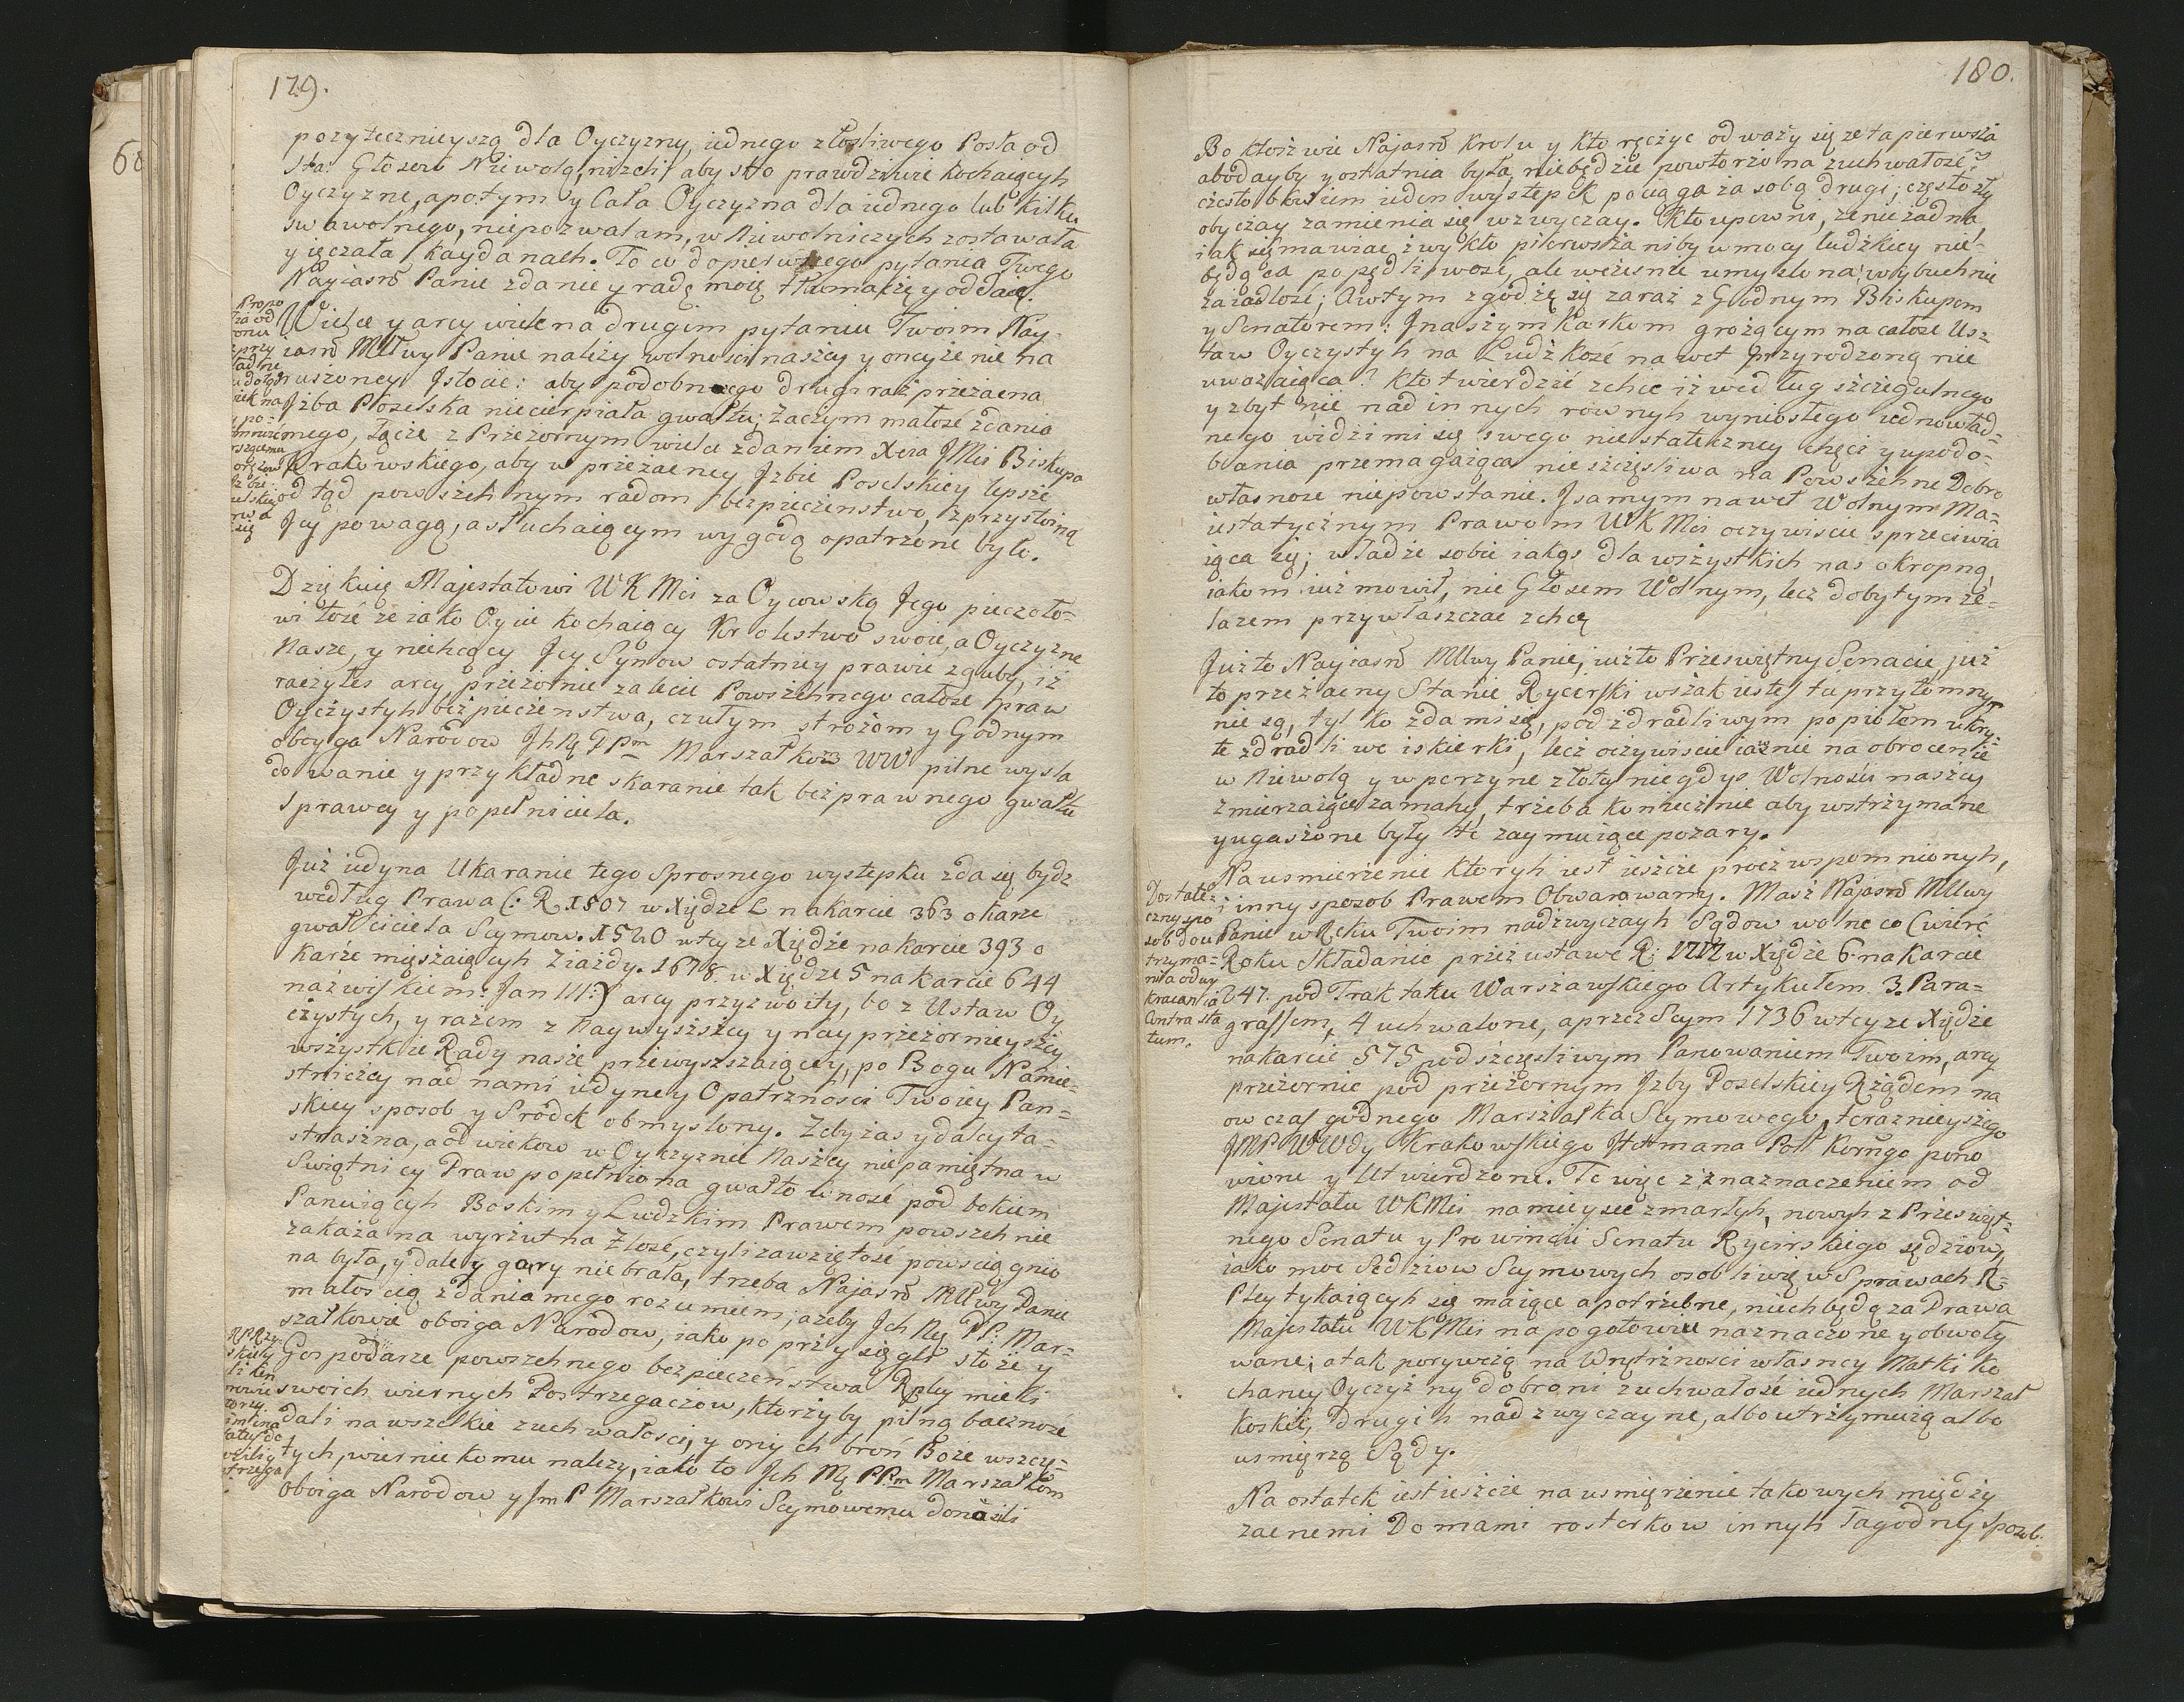 179.
pozytecznieyszą dla Oyczyzny, iednego złosliwego Posła od
Głosow Niewolą, niżeli aby sto prawdziwie kochaiących
Oyczyznę, apotym y Cała Oyczyzna dla iednego lub kilku
swawolnego, niepozwalam, w Niewolniczych zostawała
y ięczała Kaydanach. To co dopierwszego pytania Twego
Nayiasn Panie zdanie y radę moię tłumaczę y oddaię.
Wiele y arcy wiele na drugim pytaniu Twoim Nay-
iasn Mlwy Panie należy wolności naszey y oneyże nie na
ruszoney Istocie: aby podobnego drugi raz przezacna
Izba Poselska niecierpiała gwałtu; Zaczym małość zdania
mego, łączę z Przezornym wielu zdaniem Xcia JMci Biskupa
Krakowskiego, aby w przezacney Izbie Poselskiey lepsze
od tąd powszehnym radom bezpieczenstwo, z przystoyną
Jey powagą, a słuchaiącym wygodą opatrzone było.
Dzięknię Majestatowi WKMci za Oycowską Jego pieczoło-
witość że iako Oyciec kochaiący Krolestwo swoie, a Oyczyznę
Nasze, y niechcący Jey Synow ostatniey prawie zguby, iż
raczyłeś arcy przezornie zalecić Powszehnego całość praw
Oyczystyh bezpieczenstwa, czułym strożom y Godnym
oboyga Narodow Ich Mę PPm Marszałkom WW pilne wysla
dowanie y przykładne skaranie tak bezprawnego gwałtu
Sprawcy y popełniciela.
Już iedyna Ukaranie tego Sprosnego występku zda się bydz
według Prawa (: R 1507 w Xiędze L na karcie 363 o karze
gwałciciela Seymow. 1520 w tey ze Xiędze na karcie 393 o
Karze mięszaiącyh Ziazdy. 1678. w Xiędze 5 na karcie 644
nazwiskiem: Jan III:) arcy przyzwoity, bo z Ustaw Oy
czystych, y razem z Naywyższey y nay przezornieyszey
wszystkie Rady nasze przewyższaiącey, po Bogu Namie-
stniczey nad nami iedyney Opatrznosci Twoiey Pan-
skiey sposob y Srodek obmyslony. Żeby zas y daley ta
straszna, a od wiekow w Oyczyznie Naszey niepamiętna w
Swiątnicy Praw popełniona gwałtowność pod bokiem
Panuiącyh Boskim y Ludzkim Prawem powszehnie
zakazana wyrzutna Złość, czyli zawziętość powsciągnio
na była, y daley gory nie brała, trzeba Najasn Mlwy Panie
małoscią zdania mego rozumiem; azeby Ich Mę PP: Mar-
szałkowie oboiga Narodow, iako po przysięgli stoże y
Gospodarze powszehnego bezpieczeństwa Rpltey mieli
swoich wiernych Postrzegaczow, ktorzyby pilną baczność
dali na wszelkie zuchwałosci, y onych broń Boze wszczę-
tych, wiernie komu nalezy, iako to Ich Mę PPm Marszałkom
Oboiga Narodow y Jm P Marszałkowi Seymowemu donosili
180.
Bo ktoż wie Najasn Krolu y kto ręczyć odważy się ze ta pierwsza
abodayby y ostatnia była, niebędzie powtorzona zuchwałość?
często bowiem ieden występek pociąga za sobą drugi; często zły
obyczay zamienia się w zwyczay. Kto upewni, ze nie żadna
iak się mawiać zwykło pierwsza niby w mocy ludzkiey nie-
będąca popędliwość, ale wczesnie umyslona wybuchnie
zaiadłość; A w tym zgodzę się zaraz z Godnym Biskupem
y Senatorem: I naszym Karkom grożącym na całość Us-
taw Oyczystyh na Ludzkość nawet przyrodzoną nie
uważaiąca? Kto twierdzić zehce iż według szczegulnego
y zbyt nie nad innych rownyh wyniosłego iednowład-
nego widzimi się swego niestateczney chęci y upodo-
bania przemagaiąca nieszczęsliwa na Powszehne Dobro
własność niepowstanie. I samym nawet Wolnym Ma-
iestatycznym Prawom WKMci oczywiscie sprzeciwia
iąca się; władze sobie iakąs dla wszystkich nas okropną,
iakom iuż mowił, nie Głosem Wolnym, lecz dobytym że-
lazem przywłaszczać zchcę
Już to Nayiasn Mlwy Panie, iuż to Przeświętny Senacie, już
to przezacny Stanie Rycerski wszak iestes tu przytomny,
nie są, tylko zda mi się, pod zdradliwym popiołem ukry-
te zdradliwe iskierki, lecz oczywiscie iasnie na obrocenie
w Niewolą y w perzynę złotey niegdyś Wolnosci naszey
zmierzaiące zamahy, trzeba koniecznie aby wstrzymane
y ugaszone były te zaymuiące pozary.
Na usmierzenie ktoryh iest ieszcze procz wspomnionyh,
i inny sposob Prawem Obwarowany. Masz Najasn Mlwy
Panie w Ręku Twoim nadzwyczayh Sądow wolne co cwierć
Roku składanie przez ustawę R: 1717 w Xiędze 6. na karcie
647. pod Traktatu Warszawskiego Artykułem 3. Para-
grafem, 4 uchwalone, a przez Seym 1736 w tey ze Xiędze
na karcie 575 pod szczęsliwym Panowaniem Twoim, arcy
przezornie pod przezornym Izby Poselskiey Rządem na
ow czas godnego Marszałka Seymowego, terazniejszego
JMP WWdy Krakowskiego Hetmana Poll Kornąo pono
wione y Utwierdzone. Te więc z znaznaczeniem od
Majestatu WKMci na mieysce zmarłyh, nowyh z Przeswięt-
nego Senatu y Prowincii Senatu Rycerskiego sędziow,
iako moc Sędziow Seymowych osobliwię w Sprawach R-
Pltey tykaiącyh się maiące a potrzebne, niech będą za Prawa
Majestatu WKMci na pogotowiu naznaczone y obwoły
wane; a tak porywczą na Wnętrznosci własney Matki ko
chaney Oyczyzny dobroni zuchwałość iednych Marszał
koskie, drugih nadzwyczayne, albo utrzymuią albo
usmięrzą Sądy.
Na ostatek iest ieszcze na usmięrzenie takowych między
zacnemi Domami rosterkow innyh łagodny Sposob.
Dostate-
czny spo
sob do u
trzyma-
nia od wy
kraczania
Contra sta
tum.